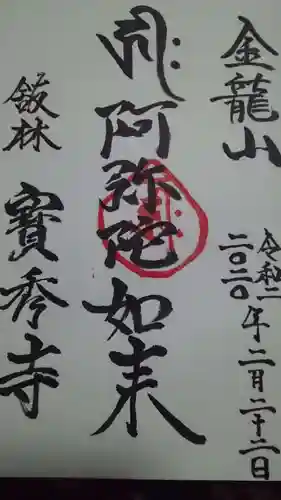 金龍山
令和二
二〇二〇年二月二十二日
阿弥陀如来
飯林
寳秀寺